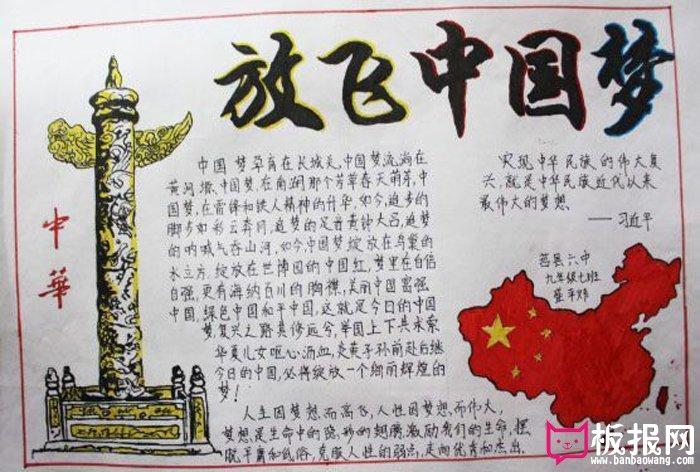 放飞中国梦
中国梦孕育在长城是,中国梦流淌在
黄河墩,中国梦在南湖那个芳草春天萌芽,中
国梦,在雷锋和铁人精神的升华,如今,追梦的
脚步如彩云奔月,追梦的足音黄钟大吕,追梦
的呐喊气吞山河,如今中国梦绽放在鸟巢的
水立方,绽放在世博园的中国红,梦里在自信
自强,更有海纳百川的胸襟,美丽中国富强
中国,绿色中国和平中国,这就是今日的中国
梦复兴之路其修远兮,举国上下共求索
华夏儿女呕心沥血,炎黄子孙前赴后继
今日的中国,必将绽放一个绚丽辉煌的
梦!
人生因梦想而高飞,人性因梦想而伟大,
梦想是生命中的隐形的翅膀,激励我们的生命,摆
脱平庸和低俗,克服人性的弱点,走向优秀和杰出.
实现中华民族的伟大复
兴,就是中华民族近代以来
最伟大的梦想
——习近平
莒县六中
九年级七班
中華
板报网
www.banbaowang.com